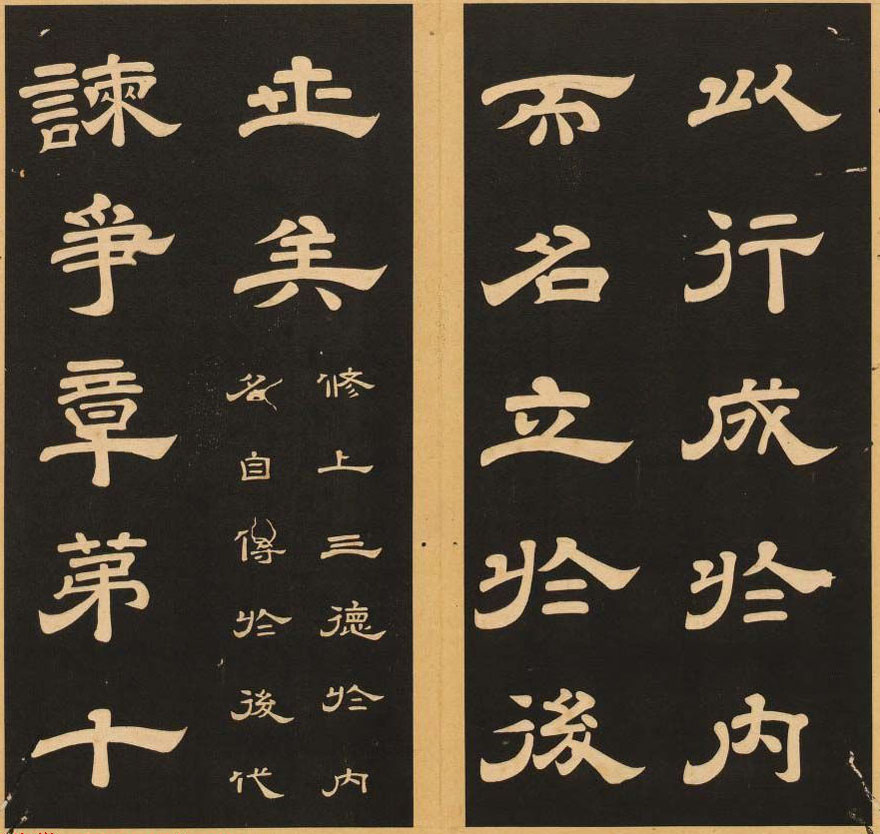 以行成於內
而名立於後
世矣
修上三德於內
名自傳於後代
諫爭章第十